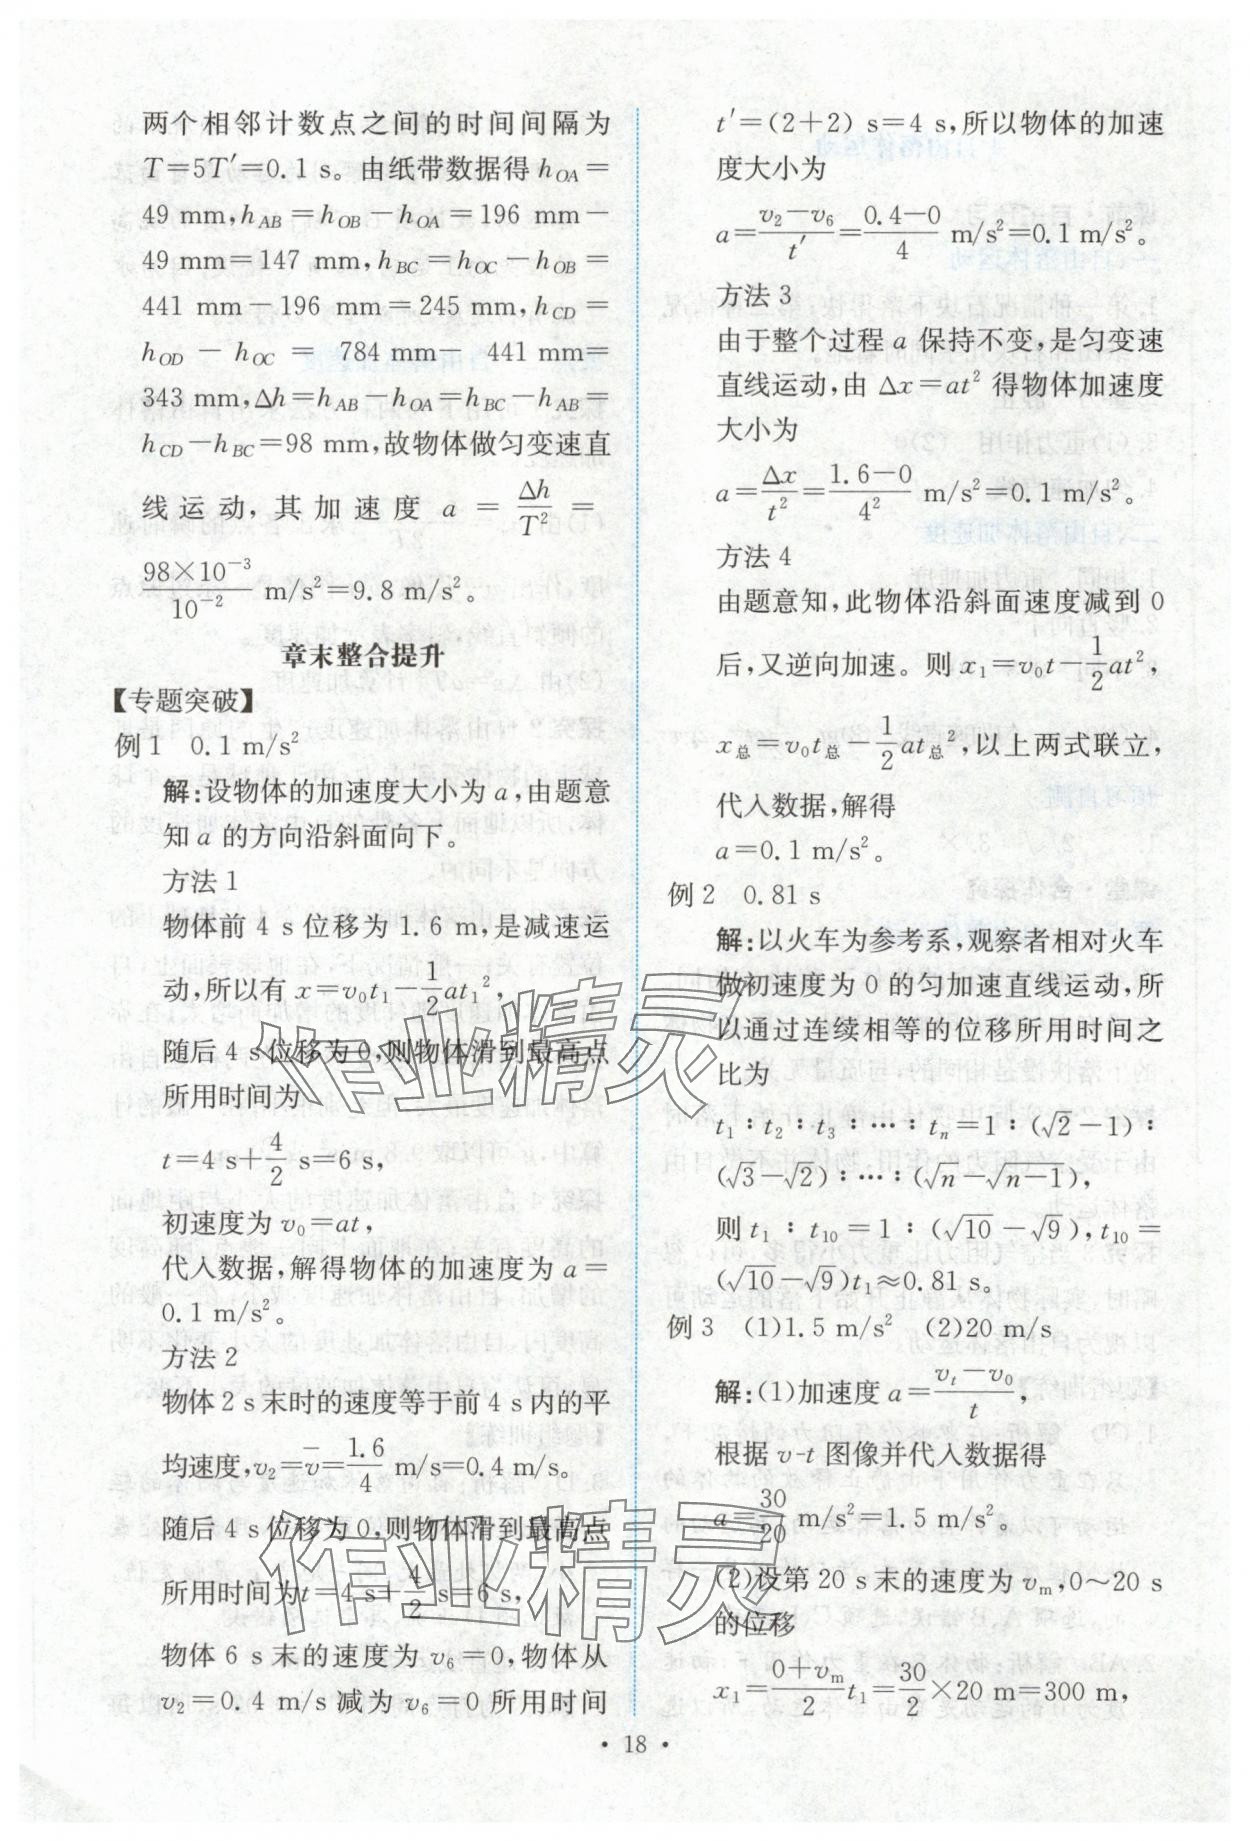 两个相邻计数点之间的时间间隔为
T=5T′=0.1 s。由纸带数据得 h_{OA}=
49 mm,h_{AB}=h_{OB}-h_{OA}=196 mm-
49 mm=147 mm,h_{BC}=h_{OC}-h_{OB}=
441 mm-196 mm=245 mm,h_{CD}=
h_{OD}-h_{OC}=784 mm-441 mm=
343 mm,Δh=h_{AB}-h_{OA}=h_{BC}-h_{AB}=
h_{CD}-h_{BC}=98 mm,故物体做匀变速直
线运动,其加速度 a=\frac{Δh}{T^2}=
\frac{98×10^{-3}}{10^{-2}} m/s²=9.8 m/s²。
章末整合提升
【专题突破】
例1 0.1 m/s²
解:设物体的加速度大小为 a,由题意
知 a 的方向沿斜面向下。
方法1
物体前 4 s 位移为 1.6 m,是减速运
动,所以有 x=v_0t_1-\frac{1}{2}at_1^2,
随后 4 s 位移为 0,则物体滑到最高点
所用时间为
t=4 s+\frac{4}{2} s=6 s,
初速度为 v_0=at,
代入数据,解得物体的加速度为 a=
0.1 m/s²。
方法2
物体 2 s 末时的速度等于前 4 s 内的平
均速度,v_2=\bar{v}=\frac{1.6}{4} m/s=0.4 m/s。
随后 4 s 位移为 0,则物体滑到最高点
所用时间为 t=4 s+\frac{4}{2} s=6 s,
物体 6 s 末的速度为 v_6=0,物体从
v_2=0.4 m/s 减为 v_6=0 所用时间
t′=(2+2) s=4 s,所以物体的加速
度大小为
a=\frac{v_2-v_6}{t′}=\frac{0.4-0}{4} m/s²=0.1 m/s²。
方法3
由于整个过程 a 保持不变,是匀变速
直线运动,由 Δx=at² 得物体加速度
大小为
a=\frac{Δx}{t^2}=\frac{1.6-0}{4^2} m/s²=0.1 m/s²。
方法4
由题意知,此物体沿斜面速度减到 0
后,又逆向加速。则 x_1=v_0t-\frac{1}{2}at²,
x_总=v_0t_总-\frac{1}{2}at_总²,以上两式联立,
代入数据,解得
a=0.1 m/s²。
例2 0.81 s
解:以火车为参考系,观察者相对火车
做初速度为 0 的匀加速直线运动,所
以通过连续相等的位移所用时间之
比为
t_1∶t_2∶t_3∶…∶t_n=1∶(√2-1)∶
(√3-√2)∶…∶(√n-√(n-1)),
则 t_1∶t_{10}=1∶(√10-√9),t_{10}=
(√10-√9)t_1≈0.81 s。
例3 (1)1.5 m/s² (2)20 m/s
解:(1)加速度 a=\frac{v_t-v_0}{t},
根据 v-t 图像并代入数据得
a=\frac{30}{20} m/s²=1.5 m/s²。
(2)设第 20 s 末的速度为 v_m,0～20 s
的位移
x_1=\frac{0+v_m}{2}t_1=\frac{30}{2}×20 m=300 m,
• 18 •
作业精灵
作业精灵